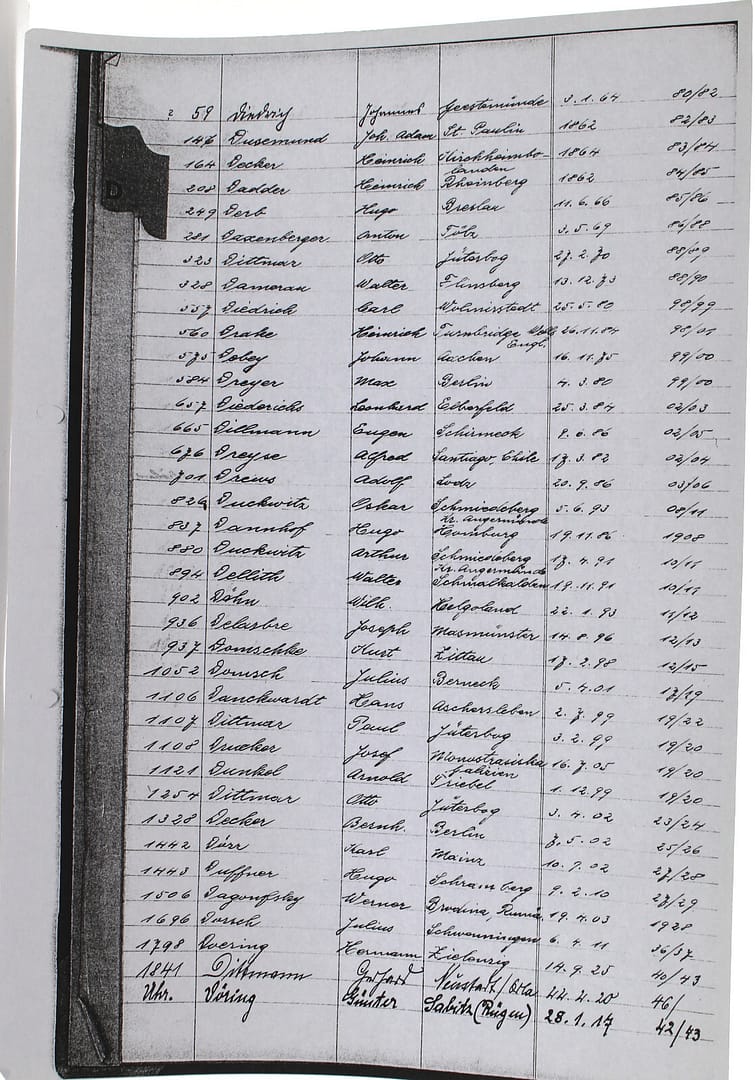 D
59 Diedrich Johannes Geestemünde 3. 1. 64 80/82
146 Dusemund Joh. Adam St. Paulin 1862 82/83
164 Decker Heinrich Kirchheimbo- 1864 83/84
landen
208 Dadder Heinrich Rheinberg 1862 84/85
249 Derb Hugo Breslau 11. 6. 66 85/86
281 Daxenberger Anton Tölz 3. 5. 69 86/88
323 Dittmar Otto Jüterbog 27. 2. 70 88/89
328 Damerau Walter Flinsberg 13. 12. 73 88/90
557 Diedrich Carl Wolmirstedt 25. 5. 80 98/99
560 Drake Heinrich Turnbridge Wells 26. 11. 84 98/01
Engl.
575 Dobey Johann Aachen 16. 11. 75 99/00
584 Dreyer Max Berlin 4. 3. 80 99/00
657 Diederichs Leonhard Elberfeld 25. 3. 84 02/03
665 Dillmann Eugen Schirmeck 9. 6. 86 02/05
676 Dreyse Alfred Santiago, Chile 17. 3. 82 02/04
701 Drews Adolf Lodz 20. 9. 86 03/06
826 Duckwitz Oskar Schmiedeberg 5. 6. 93 08/11
Kr. Angermünde
837 Dannhof Hugo Homburg 19. 11. 86 1908
880 Duckwitz Arthur Schmiedeberg 17. 4. 91 10/11
Kr. Angermünde
894 Dellith Walter Schmalkalden 19. 11. 91 10/11
902 Döhn Wilh. Helgoland 22. 1. 93 11/12
936 Delasbre Joseph Masmünster 14. 8. 96 12/13
937 Domschke Kurt Zittau 17. 2. 98 12/15
1052 Domsch Julius Berneck 5. 4. 01 17/19
1106 Danckwardt Hans Aschersleben 2. 7. 99 19/22
1107 Dittmar Paul Jüterbog 3. 2. 99 19/20
1108 Josef 16. 7. 05 19/20
Galizien
1121 Dunkel Arnold Triebel 1. 12. 99 19/20
1254 Dittmar Otto Jüterbog 3. 4. 02 23/24
1328 Decker Bernh. Berlin 7. 5. 02 25/26
1442 Dörr Karl Mainz 10. 9. 02 27/28
1443 Duffner Hugo Schramberg 9. 2. 10 27/29
1506 Dagonfsky Werner Brodina 19. 4. 03 1928
1696 Dorsch Julius Schwenningen 6. 4. 11 36/37
1798 Doering Hermann Zielenzig 14. 9. 25 40/43
1841 Dittmann Gerhard Neustadt/Orla 22. 4. 20 46/
Uhr. Döring Günter Sabitz (Rügen) 28. 1. 17 42/43